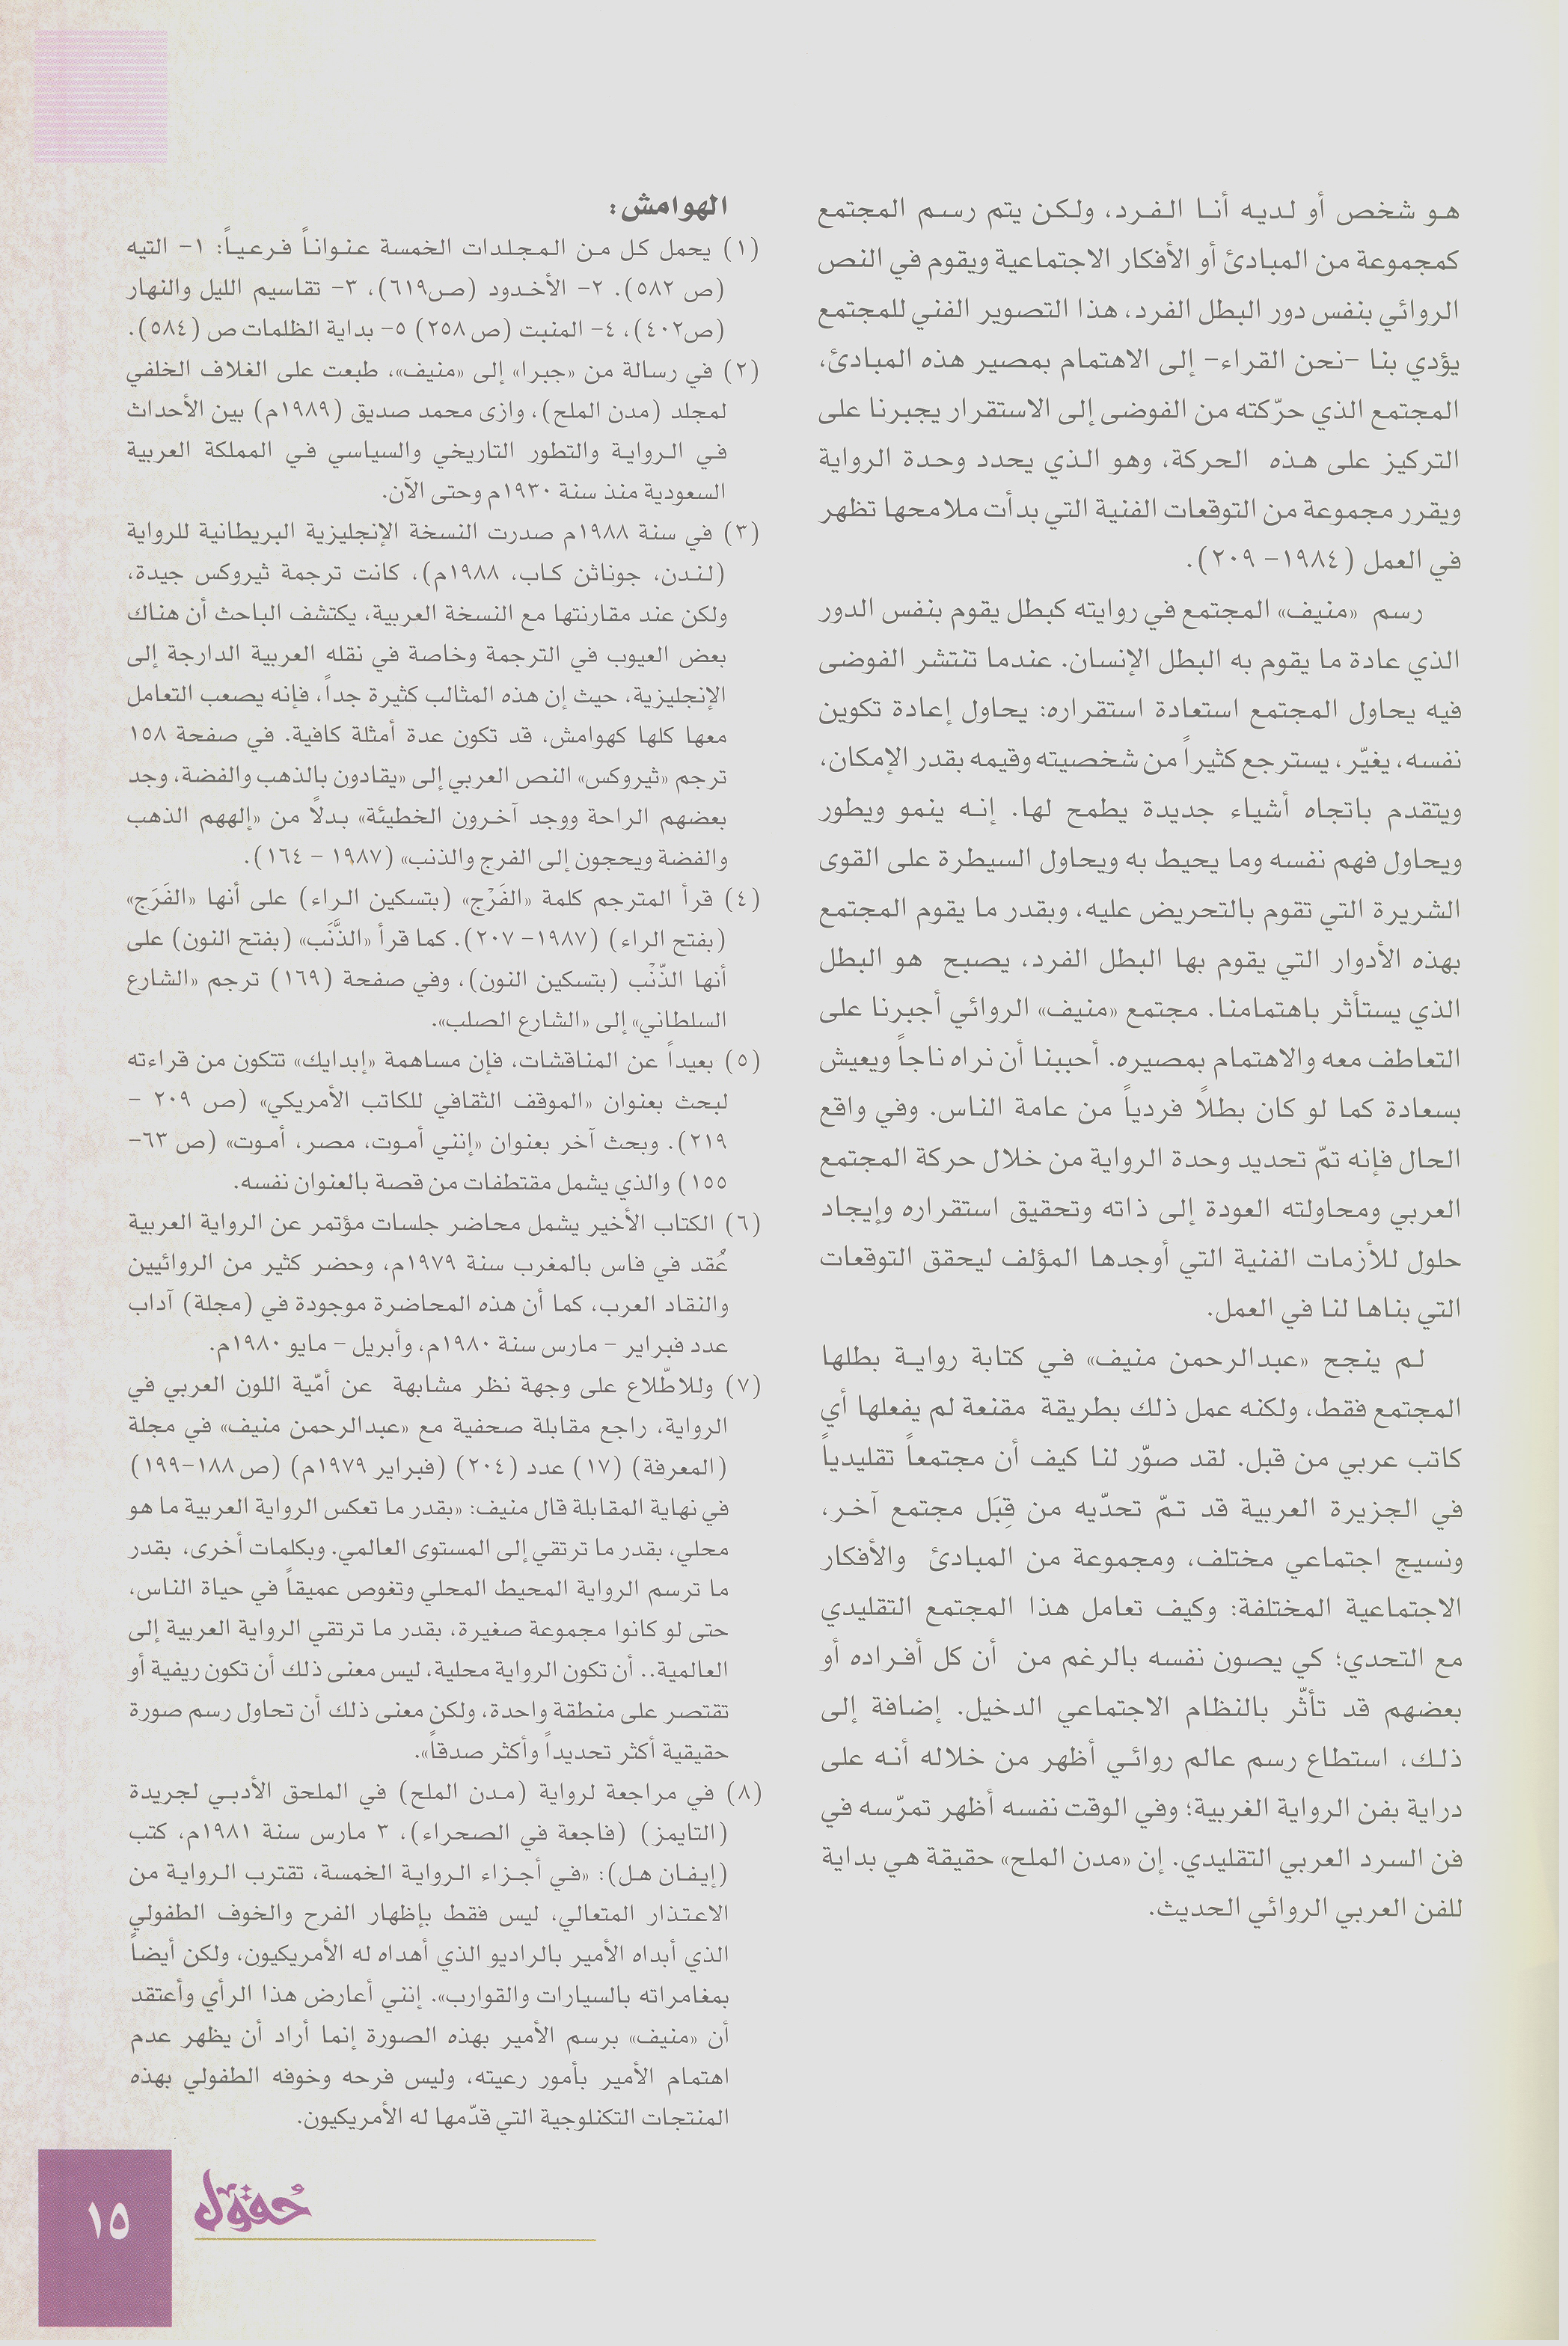 هو شخص أو لديه أنا الفرد، ولكن يتم رسم المجتمع
كمجموعة من المبادئ أو الأفكار الاجتماعية ويقوم في النص
الروائي بنفس دور البطل الفرد، هذا التصوير الفني للمجتمع
يؤدي بنا –نحن القراء– إلى الاهتمام بمصير هذه المبادئ،
المجتمع الذي حرّكته من الفوضى إلى الاستقرار يجبرنا على
التركيز على هذه الحركة، وهو الذي يحدد وحدة الرواية
ويقرر مجموعة من التوقعات الفنية التي بدأت ملامحها تظهر
في العمل (١٩٨٤– ٢٠٩).
رسم «منيف» المجتمع في روايته كبطل يقوم بنفس الدور
الذي عادة ما يقوم به البطل الإنسان. عندما تنتشر الفوضى
فيه يحاول المجتمع استعادة استقراره: يحاول إعادة تكوين
نفسه، يغيّر، يسترجع كثيراً من شخصيته وقيمه بقدر الإمكان،
ويتقدم باتجاه أشياء جديدة يطمح لها. إنه ينمو ويطور
ويحاول فهم نفسه وما يحيط به ويحاول السيطرة على القوى
الشريرة التي تقوم بالتحريض عليه، وبقدر ما يقوم المجتمع
بهذه الأدوار التي يقوم بها البطل الفرد، يصبح هو البطل
الذي يستأثر باهتمامنا. مجتمع «منيف» الروائي أجبرنا على
التعاطف معه والاهتمام بمصيره. أحببنا أن نراه ناجاً ويعيش
بسعادة كما لو كان بطلاً فردياً من عامة الناس. وفي واقع
الحال فإنه تمّ تحديد وحدة الرواية من خلال حركة المجتمع
العربي ومحاولته العودة إلى ذاته وتحقيق استقراره وإيجاد
حلول للأزمات الفنية التي أوجدها المؤلف ليحقق التوقعات
التي بناها لنا في العمل.
لم ينجح «عبدالرحمن منيف» في كتابة رواية بطلها
المجتمع فقط، ولكنه عمل ذلك بطريقة مقنعة لم يفعلها أي
كاتب عربي من قبل. لقد صوّر لنا كيف أن مجتمعاً تقليدياً
في الجزيرة العربية قد تمّ تحدّيه من قِبَل مجتمع آخر،
ونسيج اجتماعي مختلف، ومجموعة من المبادئ والأفكار
الاجتماعية المختلفة: وكيف تعامل هذا المجتمع التقليدي
مع التحدي؛ كي يصون نفسه بالرغم من أن كل أفراده أو
بعضهم قد تأثّر بالنظام الاجتماعي الدخيل. إضافة إلى
ذلك، استطاع رسم عالم روائي أظهر من خلاله أنه على
دراية بفن الرواية الغربية؛ وفي الوقت نفسه أظهر تمرّسه في
فن السرد العربي التقليدي. إن «مدن الملح» حقيقة هي بداية
للفن العربي الروائي الحديث.
الهوامش:
(١) يحمل كل من المجلدات الخمسة عنواناً فرعياً: ١– التيه
(ص ٥٨٢). ٢– الأخدود (ص٦١٩)، ٣– تقاسيم الليل والنهار
(ص٤٠٢)، ٤– المنبت (ص ٢٥٨) ٥– بداية الظلمات ص (٥٨٤).
(٢) في رسالة من «جبرا» إلى «منيف»، طبعت على الغلاف الخلفي
لمجلد (مدن الملح)، وازى محمد صديق (١٩٨٩م) بين الأحداث
في الرواية والتطور التاريخي والسياسي في المملكة العربية
السعودية منذ سنة ١٩٣٠م وحتى الآن.
(٣) في سنة ١٩٨٨م صدرت النسخة الإنجليزية البريطانية للرواية
(لندن، جوناثن كاب، ١٩٨٨م)، كانت ترجمة ثيروكس جيدة،
ولكن عند مقارنتها مع النسخة العربية، يكتشف الباحث أن هناك
بعض العيوب في الترجمة وخاصة في نقله العربية الدارجة إلى
الإنجليزية، حيث إن هذه المثالب كثيرة جداً، فإنه يصعب التعامل
معها كلها كهوامش، قد تكون عدة أمثلة كافية. في صفحة ١٥٨
ترجم «ثيروكس» النص العربي إلى «يقادون بالذهب والفضة، وجد
بعضهم الراحة ووجد آخرون الخطيئة» بدلاً من «إلههم الذهب
والفضة ويحجون إلى الفرج والذنب» (١٩٨٧ – ١٦٤).
(٤) قرأ المترجم كلمة «الفَرْج» (بتسكين الراء) على أنها «الفَرَج»
(بفتح الراء) (١٩٨٧– ٢٠٧). كما قرأ «الذَّنَب» (بفتح النون) على
أنها الذّنْب (بتسكين النون)، وفي صفحة (١٦٩) ترجم «الشارع
السلطاني» إلى «الشارع الصلب».
(٥) بعيداً عن المناقشات، فإن مساهمة «إبدايك» تتكون من قراءته
لبحث بعنوان «الموقف الثقافي للكاتب الأمريكي» (ص ٢٠٩ –
٢١٩). وبحث آخر بعنوان «إنني أموت، مصر، أموت» (ص ٦٣–
١٥٥) والذي يشمل مقتطفات من قصة بالعنوان نفسه.
(٦) الكتاب الأخير يشمل محاضر جلسات مؤتمر عن الرواية العربية
عُقد في فاس بالمغرب سنة ١٩٧٩م، وحضر كثير من الروائيين
والنقاد العرب، كما أن هذه المحاضرة موجودة في (مجلة) آداب
عدد فبراير – مارس سنة ١٩٨٠م، وأبريل – مايو ١٩٨٠م.
(٧) وللاطّلاع على وجهة نظر مشابهة عن أمّية اللون العربي في
الرواية، راجع مقابلة صحفية مع «عبدالرحمن منيف» في مجلة
(المعرفة) (١٧) عدد (٢٠٤) (فبراير ١٩٧٩م) (ص ١٨٨–١٩٩)
في نهاية المقابلة قال منيف: «بقدر ما تعكس الرواية العربية ما هو
محلي، بقدر ما ترتقي إلى المستوى العالمي. وبكلمات أخرى، بقدر
ما ترسم الرواية المحيط المحلي وتغوص عميقاً في حياة الناس،
حتى لو كانوا مجموعة صغيرة، بقدر ما ترتقي الرواية العربية إلى
العالمية.. أن تكون الرواية محلية، ليس معنى ذلك أن تكون ريفية أو
تقتصر على منطقة واحدة، ولكن معنى ذلك أن تحاول رسم صورة
حقيقية أكثر تحديداً وأكثر صدقاً».
(٨) في مراجعة لرواية (مدن الملح) في الملحق الأدبي لجريدة
(التايمز) (فاجعة في الصحراء)، ٣ مارس سنة ١٩٨١م، كتب
(إيفان هل): «في أجزاء الرواية الخمسة، تقترب الرواية من
الاعتذار المتعالي، ليس فقط بإظهار الفرح والخوف الطفولي
الذي أبداه الأمير بالراديو الذي أهداه له الأمريكيون، ولكن أيضاً
بمغامراته بالسيارات والقوارب». إنني أعارض هذا الرأي وأعتقد
أن «منيف» برسم الأمير بهذه الصورة إنما أراد أن يظهر عدم
اهتمام الأمير بأمور رعيته، وليس فرحه وخوفه الطفولي بهذه
المنتجات التكنلوجية التي قدّمها له الأمريكيون.
حقول
١٥